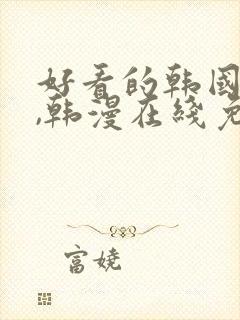 好看的韩国
,韩漫在线免
富娆